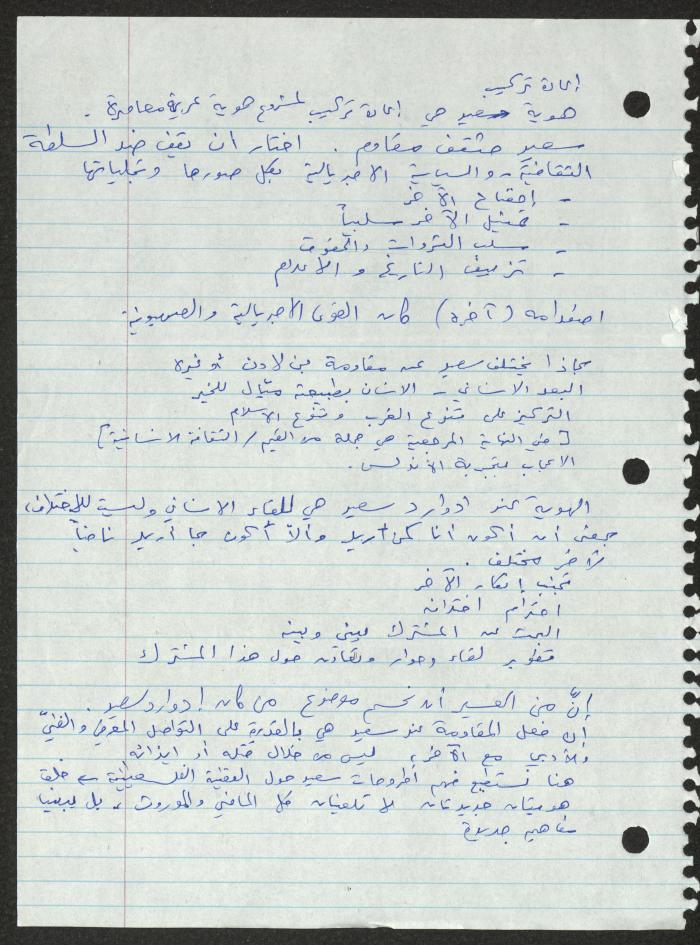 إعادة تركيب
هوية سعيد هي إعادة تركيب لمشروع هوية عربية معاصرة.
سعيد مثقف مقاوم. اختار ان يقف ضد السلطة
الثقافية - والسياسية الامبريالية بكل صورها وتجلياتها
- إخضاع الآخر
- تمثيل الآخر سلبياً
- سلب الثروات والحقوق
- تزييف التاريخ والإعلام
(آخره) كان القوى الامبريالية والصهيونية
بماذا يختلف سعيد عن مقاومة بن لادن أو غيره
البعد الانساني - الانسان بطبيعته ميّال للخير
التركيز على تنوع الغرب وتنوع الاسلام
[في النهاية المرجعية هي جملة من القيم / الثقافة الانسانية]
الاعجاب بتجربة الأندلس.
الهوية عند ادوارد سعيد هي للقاء الانساني وليست للاختلاف،
بمعنى أن أكون أنا كما أريد وألّا أكون بما أريد نافياً
لآخر مختلف.
تجنب إنكار الآخر
احترام اختلافه
البحث عن المشترك بيني وبينه
تطوير لقاء وحوار وتعاون حول هذا المشترك
إنّ من العسير أن نحسم موضوع من كان إدوارد سعيد.
إن فعل المقاومة عند سعيد هي بالقدرة على التواصل المعرفي والفنيّ
والأدبي مع الآخر، ليس من خلال قتله أو ايذائه
هنا نستطيع فهم أطروحات سعيد حول القضية الفلسطينية ← خلق
هويتان جديدتان لا تلغيان كل الماضي والموروث، بل يبنيا
مفاهيم جديدة